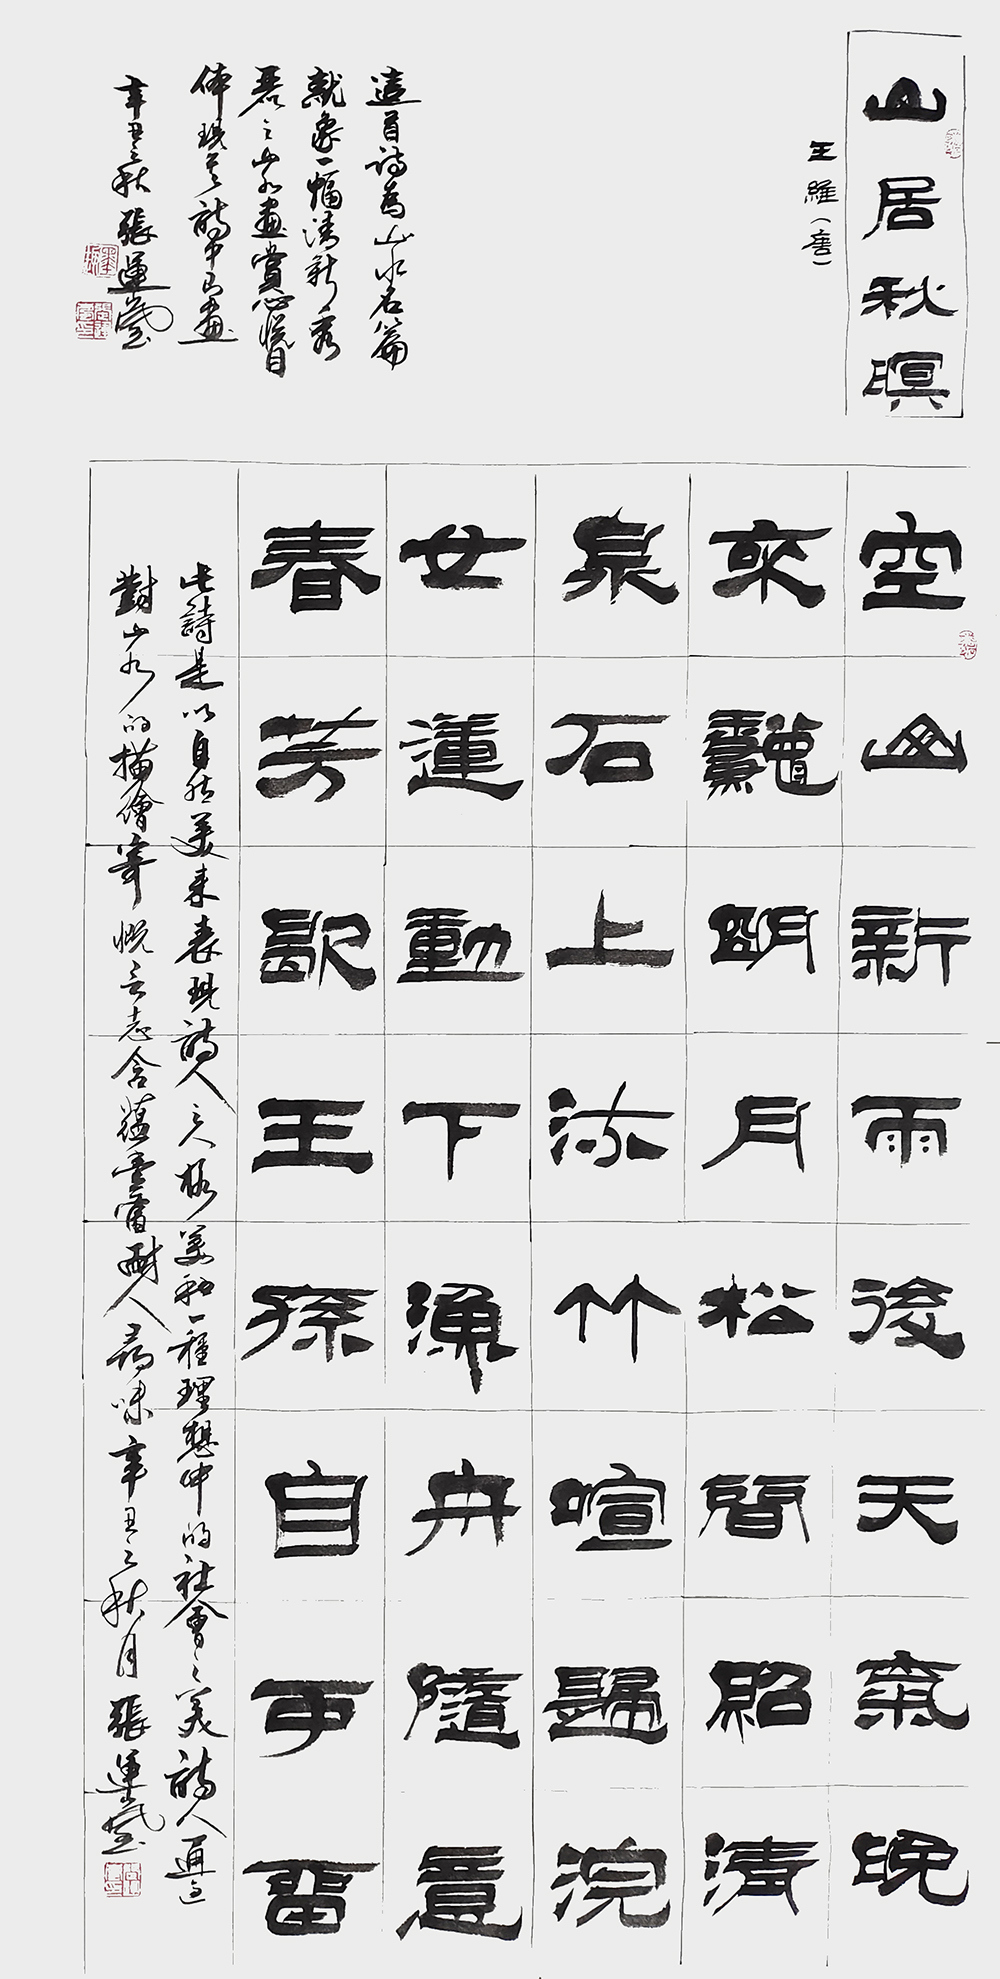 山居秋暝
王維（唐）
這首詩為山水名篇
就象一幅清新秀
麗之山水畫賞心悅目
体現其詩中有畫
辛丑之秋張運
空山新雨後天氣晚
來龝朙月松間照清
泉石上流竹喧歸浣
女蓮動下漁舟隨意
春芳歇王孫自可留
此詩是以自然美來表現詩人之人格美和一種理想中的社會之美詩人通過
對山水的描繪寄慨言志含蘊豐富耐人尋味辛丑之秋月張運